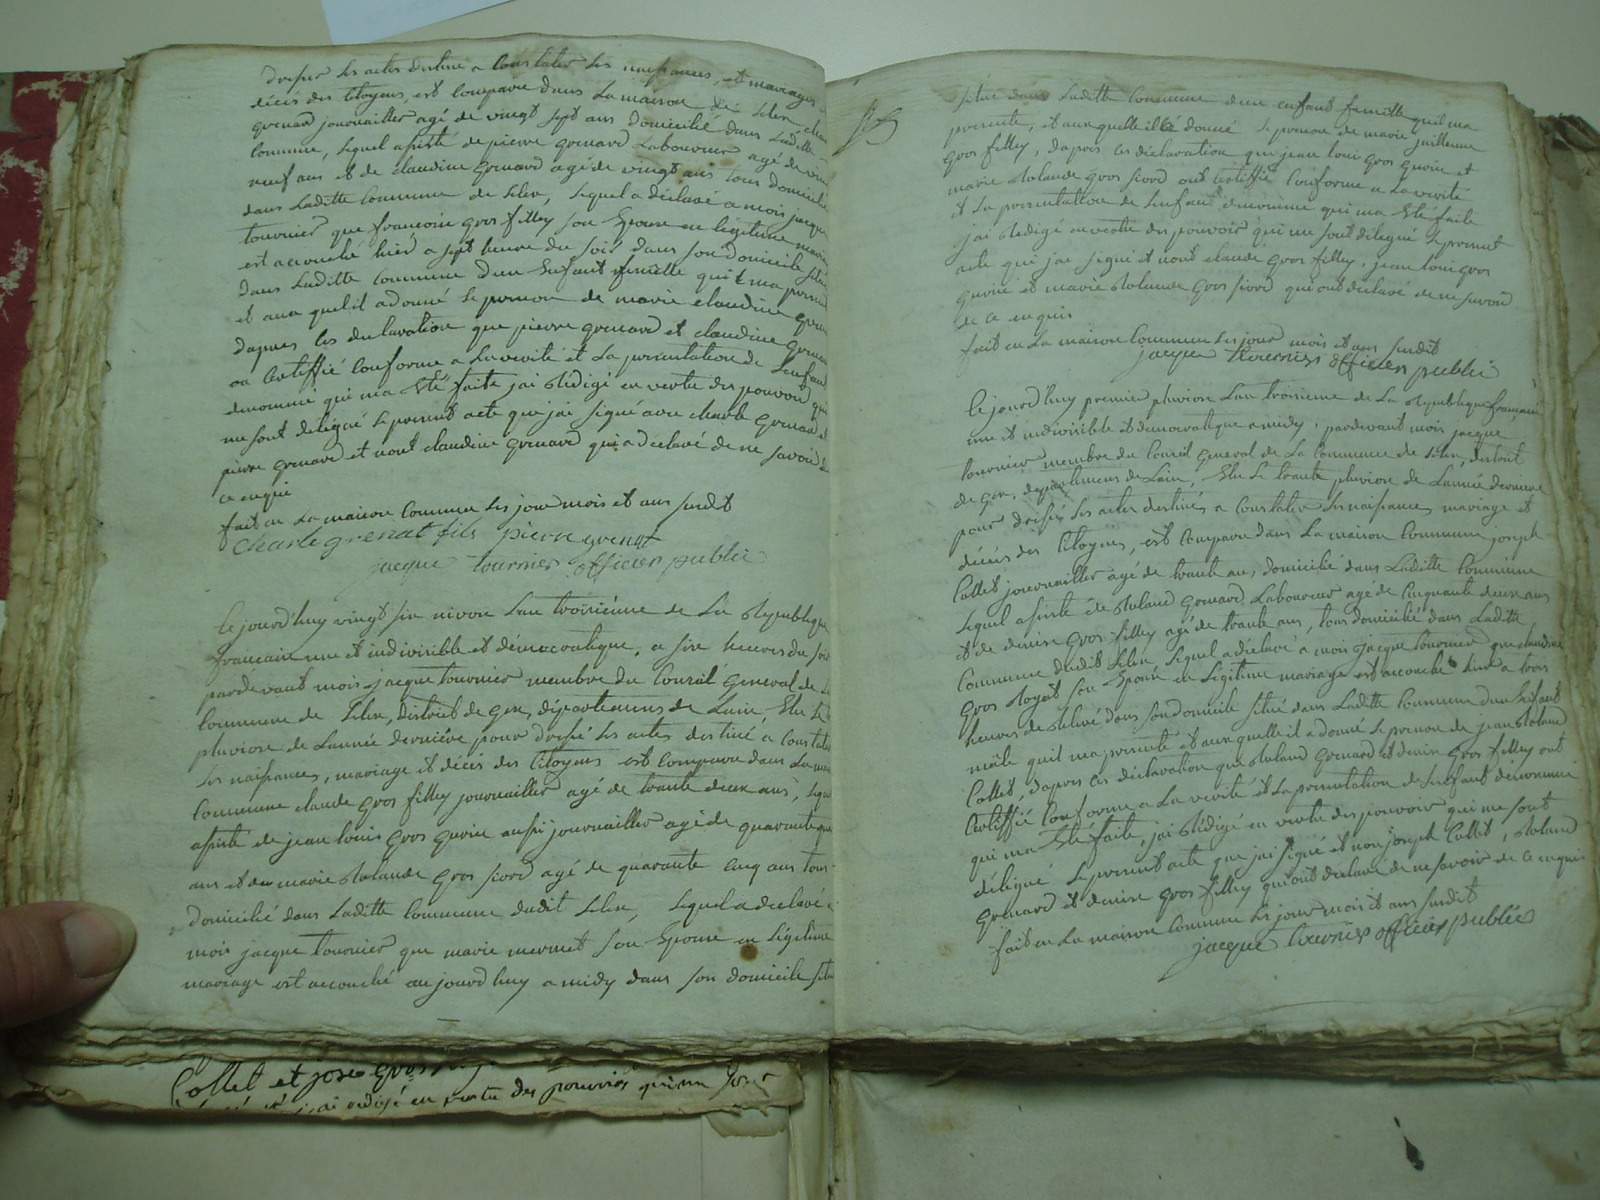 dresser les actes destine a Constater les naissances, et mariages
décés des Citoyens, est Comparu dans La maison de Lelex
grenard journailler agé de vingt sept ans domicilié dans Laditte
Commune, lequel assisté de pierre grenard Laboureur agé de
neuf ans et de claudine grenard agé de vingt ans tous domicilié
dans Laditte Commune de Lelex, lequel a déclaré a mois jacque
tournier que francoise gros filley son Epouse en légitime
est accouché hier a sept heure du soir dans son domicile situé
dans Laditte Commune dun Enfant femelle quil ma
et au quel il a donné le prenom de marie claudine
dapres les declaration que pierre grenard et claudine
on Certiffié Conforme a La verité et La presentation de Lenfant
denommé qui ma Eté faite jai Rédigé en vertu des pouvoir qui
me sont délégué le present acte que jai signé avec charle grenard et
pierre grenard et nont claudine grenard qui a declaré de ne savoir
ce enquis
fait en La maison Commune les jour mois et ans susdit
Charle grenat fils pierre grenat
jacque tournier officier public
Le jourd'huy vingt six nivose Lan troisieme de La Republique
francaise une et indivisible et démocratique, a six heures du soir
pardevant mois jacque tournier membre du Conseil General de La
Commune de Lelex, district de Gex, départemens de Lain, Elu le
pluviose de Lannée derniére pour dressé les actes destiné a Constater
les naissances, mariage et décés des Citoyens est Comparu dans La
Commune claude gros filley journailler agé de trante deux ans,
assisté de jean louis gros gurin aussi journailler agé de quarante
ans et de marie Rolande gros fiord agé de quarante cinq ans tous
domicilié dans Laditte Commune dudit Lelex, lequel a declaré a
mois jacque tournier que marie mermet son Epouse en Légitime
mariage est accouché au jourd'huy a midy dans son domicile situé
Collet et
jai redigé en vertu des pouvoirs qui me sont
situé dans Laditte Commune dun enfant femelle quil ma
presenté, et au quelle il a donné le prenom de marie juillenne
gros filley, dapres les déclaration que jean loui gros gurin et
marie Rolande gros fiord ont Certiffié Conforme a La verité
et La presentation de Lenfant denommé qui ma Eté faite
jai Rédigé en vertu des pouvoir qui me sont délégué le present
acte que jai signé et nont claude gros filley, jean loui gros
gurin et marie Rolande gros fiord qui ont declaré de ne savoir
de ce enquis
fait en La maison Commune les jour mois et ans susdit
jacque tournier officier public
Le jourd'huy premier pluviose Lan troisieme de La Republique francaise
une et indivisible et democratique a midy, pardevant mois jacque
tournier membre du Conseil General de La Commune de Lelex, district
de Gex, departemens de Lain, Elu le trante pluviose de Lannée derniere
pour dressé les actes destinés a Constater les naissances mariage et
décés des Citoyens, est Comparu dans La maison Commune joseph
Collet journailler agé de trante ans, domicilié dans Laditte Commune
lequel assisté de Roland Grenard Laboureur agé de Cinquante deux ans
et de denise gros filley agé de trante ans, tous domicilié dans Laditte
Commune dudit Lelex, lequel a déclaré a mois jacque tournier que
gros son Epouse en Légitime mariage est accouché hier a trois
heures de dans son domicile situé dans Laditte Commune dun Enfant
mâle quil ma presenté et au quelle il a donné le prenom de jean Roland
Collet, dapres les déclaration que Roland grenard et denise gros filley ont
Certiffié Conforme a La verité et La presentation de Lenfant dénommé
qui ma Eté faite, jai Rédigé en vertu des pouvoir qui me sont
délégué le present acte que jai signé et non joseph Collet, Roland
grenard et denise gros filley qui ont declaré de ne savoir de ce enquis
fait en La maison Commune les jour mois et ans susdit
jacque tournier officier public